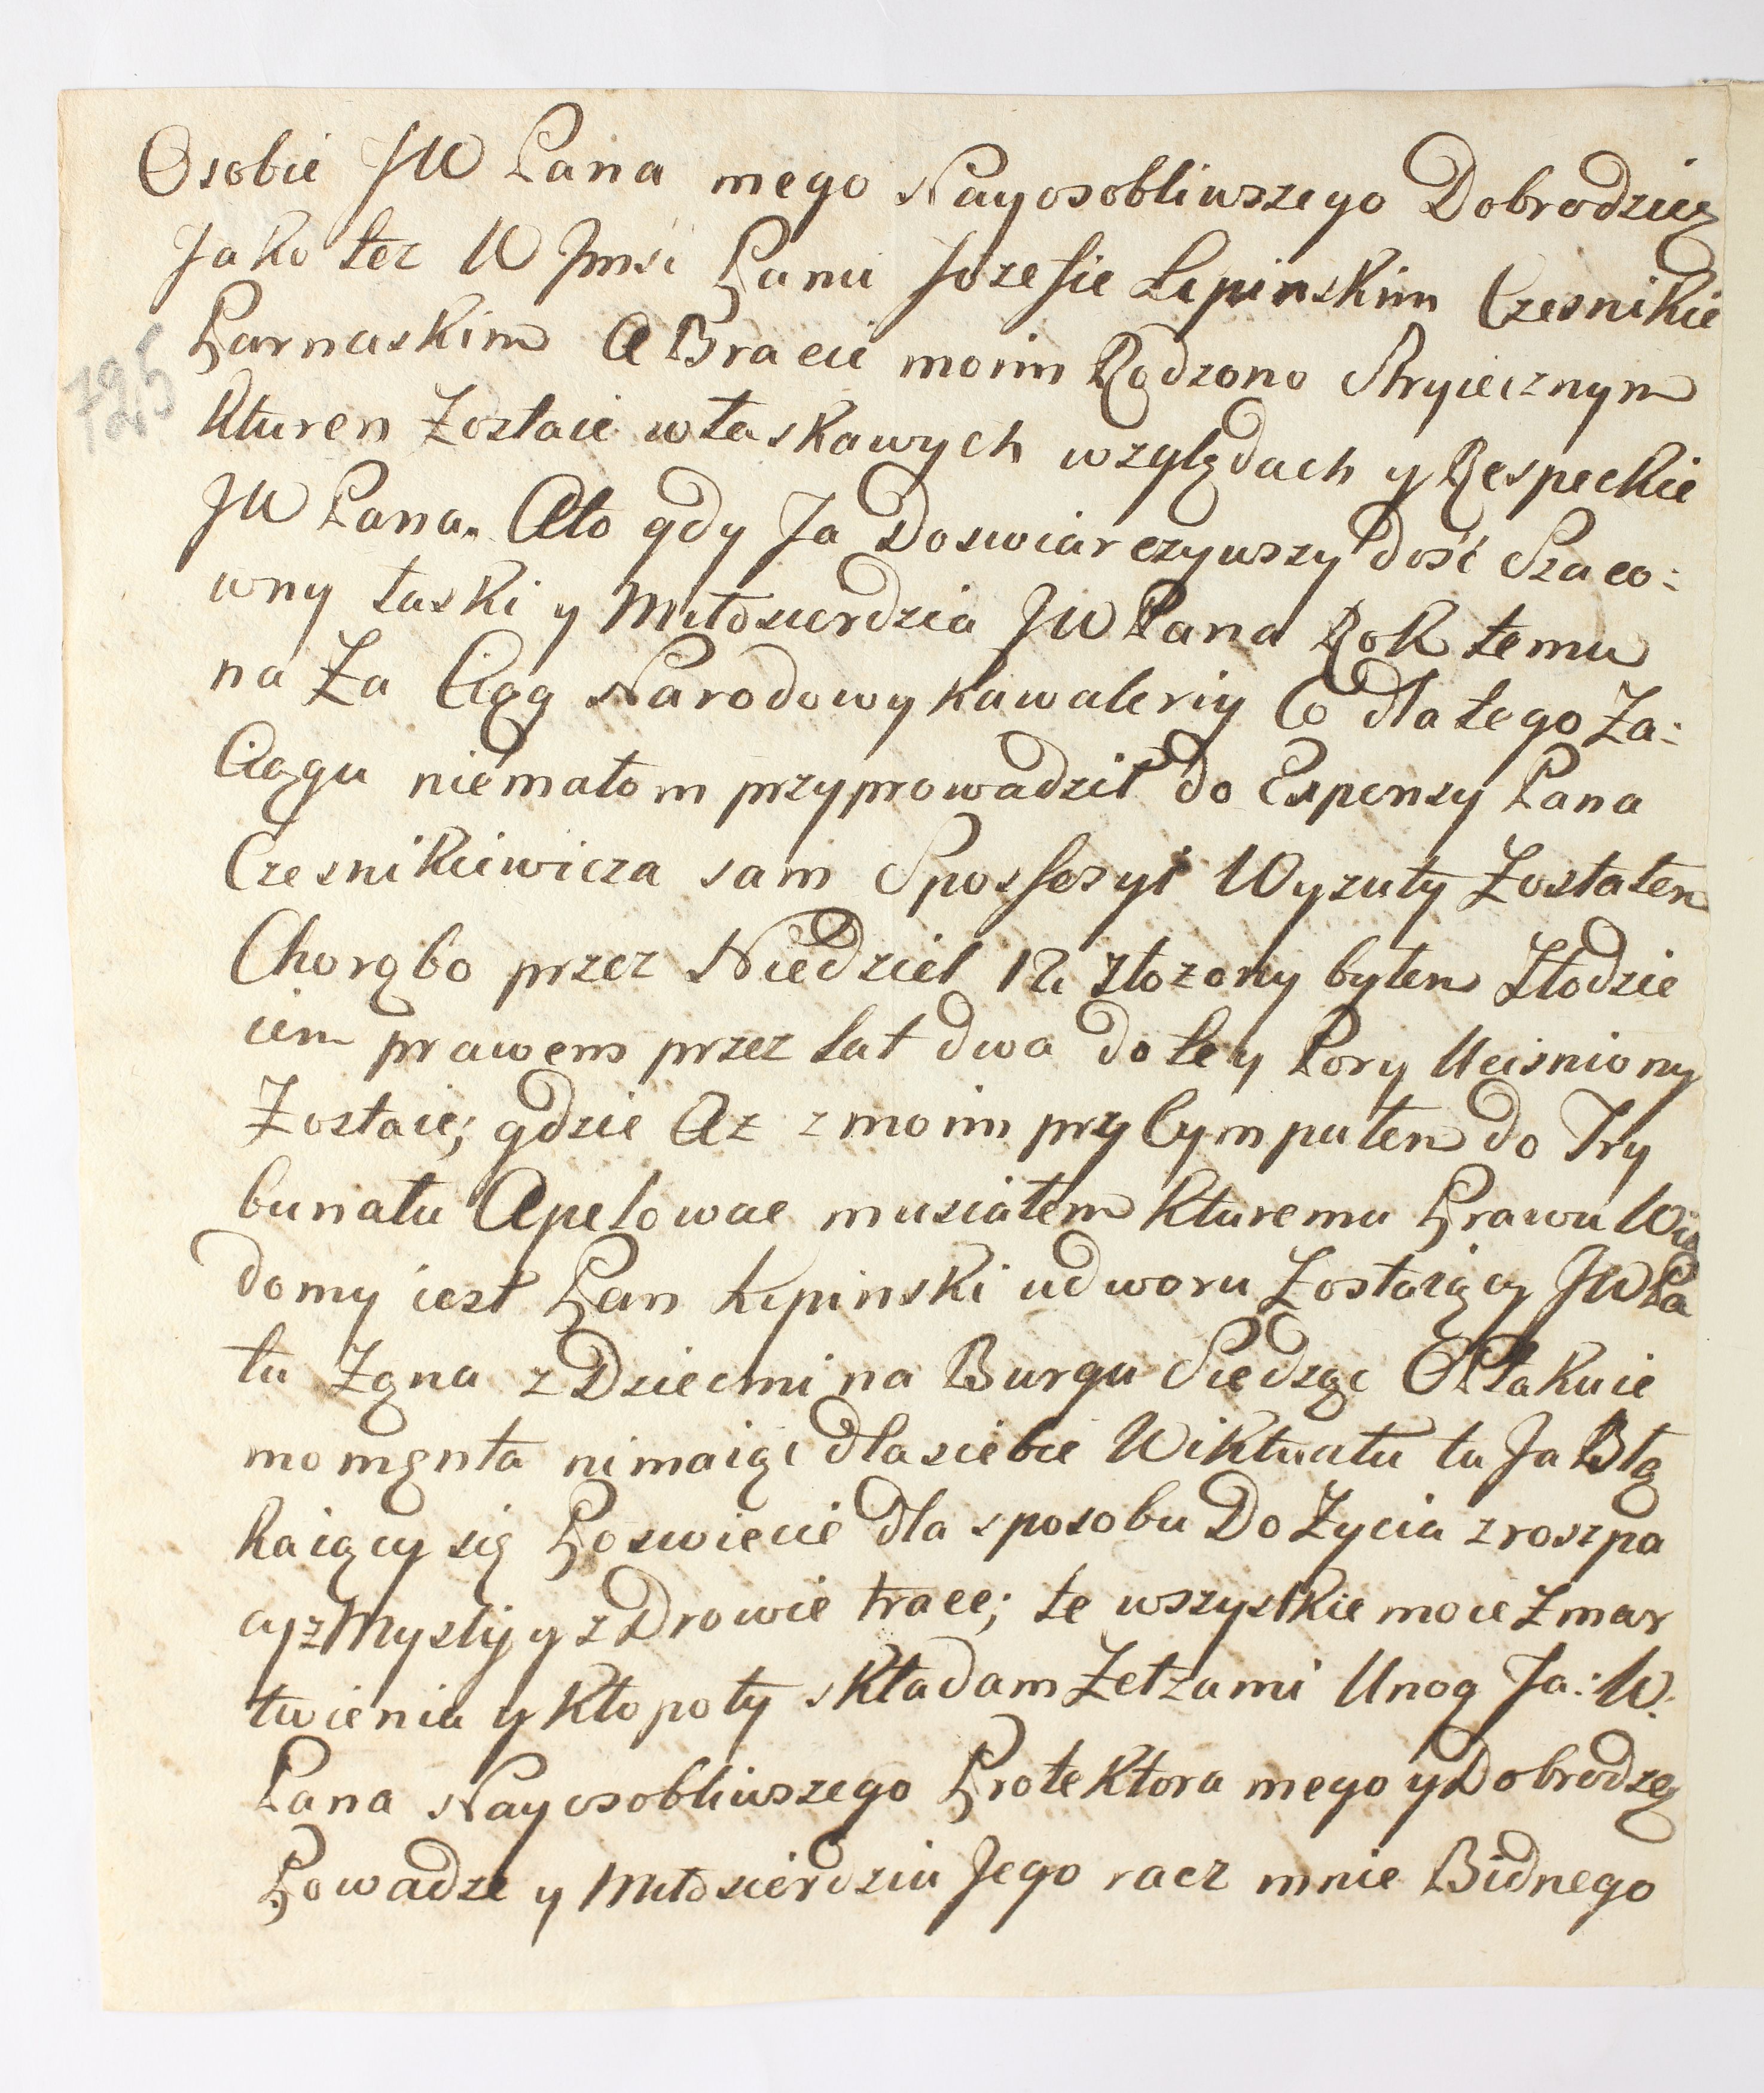 Osobie JW Pana mego Nayosobliwszego Dobrodzieȩ
Jako tez W Jmsći Panu Jozefie Lipinskim Czesnikie
Parnaskim A Bracie moim Rodzono Stryiecznym
Kturen Zostaie w łaskawych względach y Respeckie
JW Pana. Ato gdy Ja Doswiarczywszy dość Szaco:
wny łaski y Miłosierdzia JW Pana Rok temu
na Za Ciąg Narodowy Kawaleriy Co dla tego Za:
Ciągu niemałom przyprowadził do Expensy Pana
Czesnikiewicza sam Sposfesyi Wyzuty Zostałem
Chorąbo przez Niedziel 12 złozony byłem Złodzie
iem prawem przez lat dwa do tey Pory Ucisniony
Zostaie; gdzie Az z moim przy Cymputem do Try
bunału Apelowac musiałem Kturemu Prawu Wia
domy iest Pan Lipinski udworu Zostaiący JW Pa
tu Zona z Dziecmi na Burgu Siedząc Opłakuie
momęnta nimaiąc dla siebie Wiktuału tu Ja Błą
Kaiący się Poswiecie dla sposobu Do Życia z roszpa
cyzmysliy y zDrowie trace; te wszystkie moie Zmar
twienia y Kłopoty składam Zełzami Unog Ja: W.
Pana Nayosobliwszego Protektora mego y Dobrodzę
Powadze y Miłosierdziu Jego racz mnie Bidnego
725